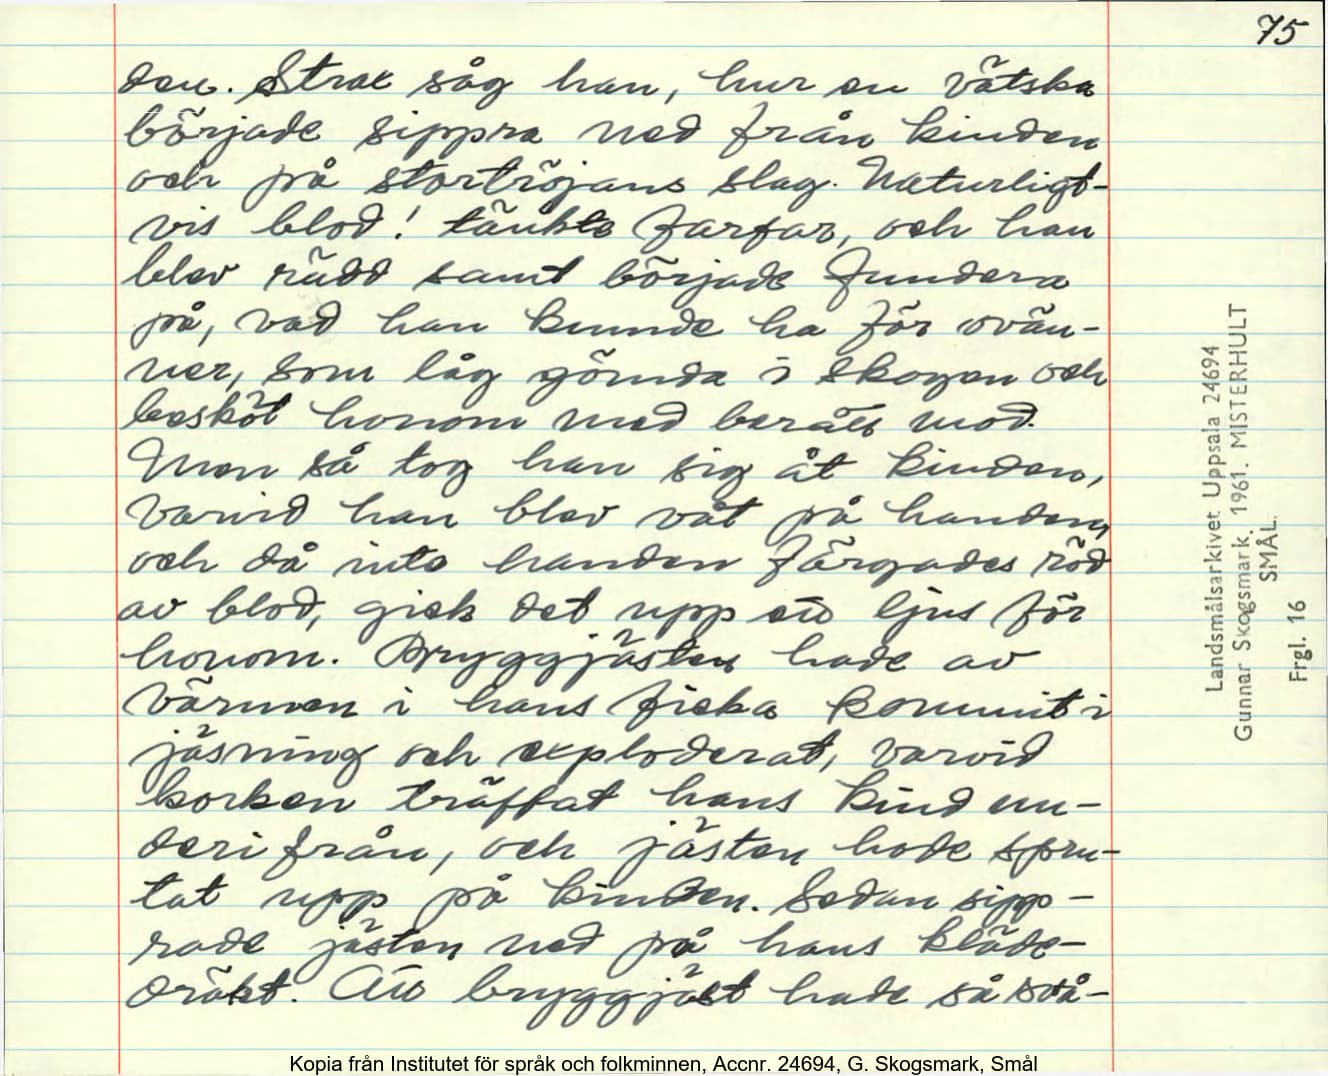 75
den. Strax såg han, hur en vätska
började sippra ned från kinden
och på stortröjans slag. Naturligt-
vis blod! tänkte farfar, och han
blev rädd samt började fundera
på, vad han kunde ha för ovän-
ner, som låg gömda i skogen och
besköt honom med berått mod.
Men så tog han sig åt kinden,
varvid han blev våt på handen,
och då inte handen färgades röd
av blod, gick det upp ett ljus för
honom. Bryggjästen hade av
värmen i hans ficka kommit i
jäsning och exploderat, varvid
korken träffat hans kind un-
derifrån, och jästen hade spru-
tat upp på kinden. Sedan sipp-
rade jästen ned på hans kläde-
dräkt. Att bryggjäst hade så svå-
Landsmålsarkivet Uppsala 24694
Gunnar Skogsmark. 1961. MISTERHULT
SMÅL.
Frgl. 16
Kopia från Institutet för språk och folkminnen, Accnr. 24694, G. Skogsmark, Smål